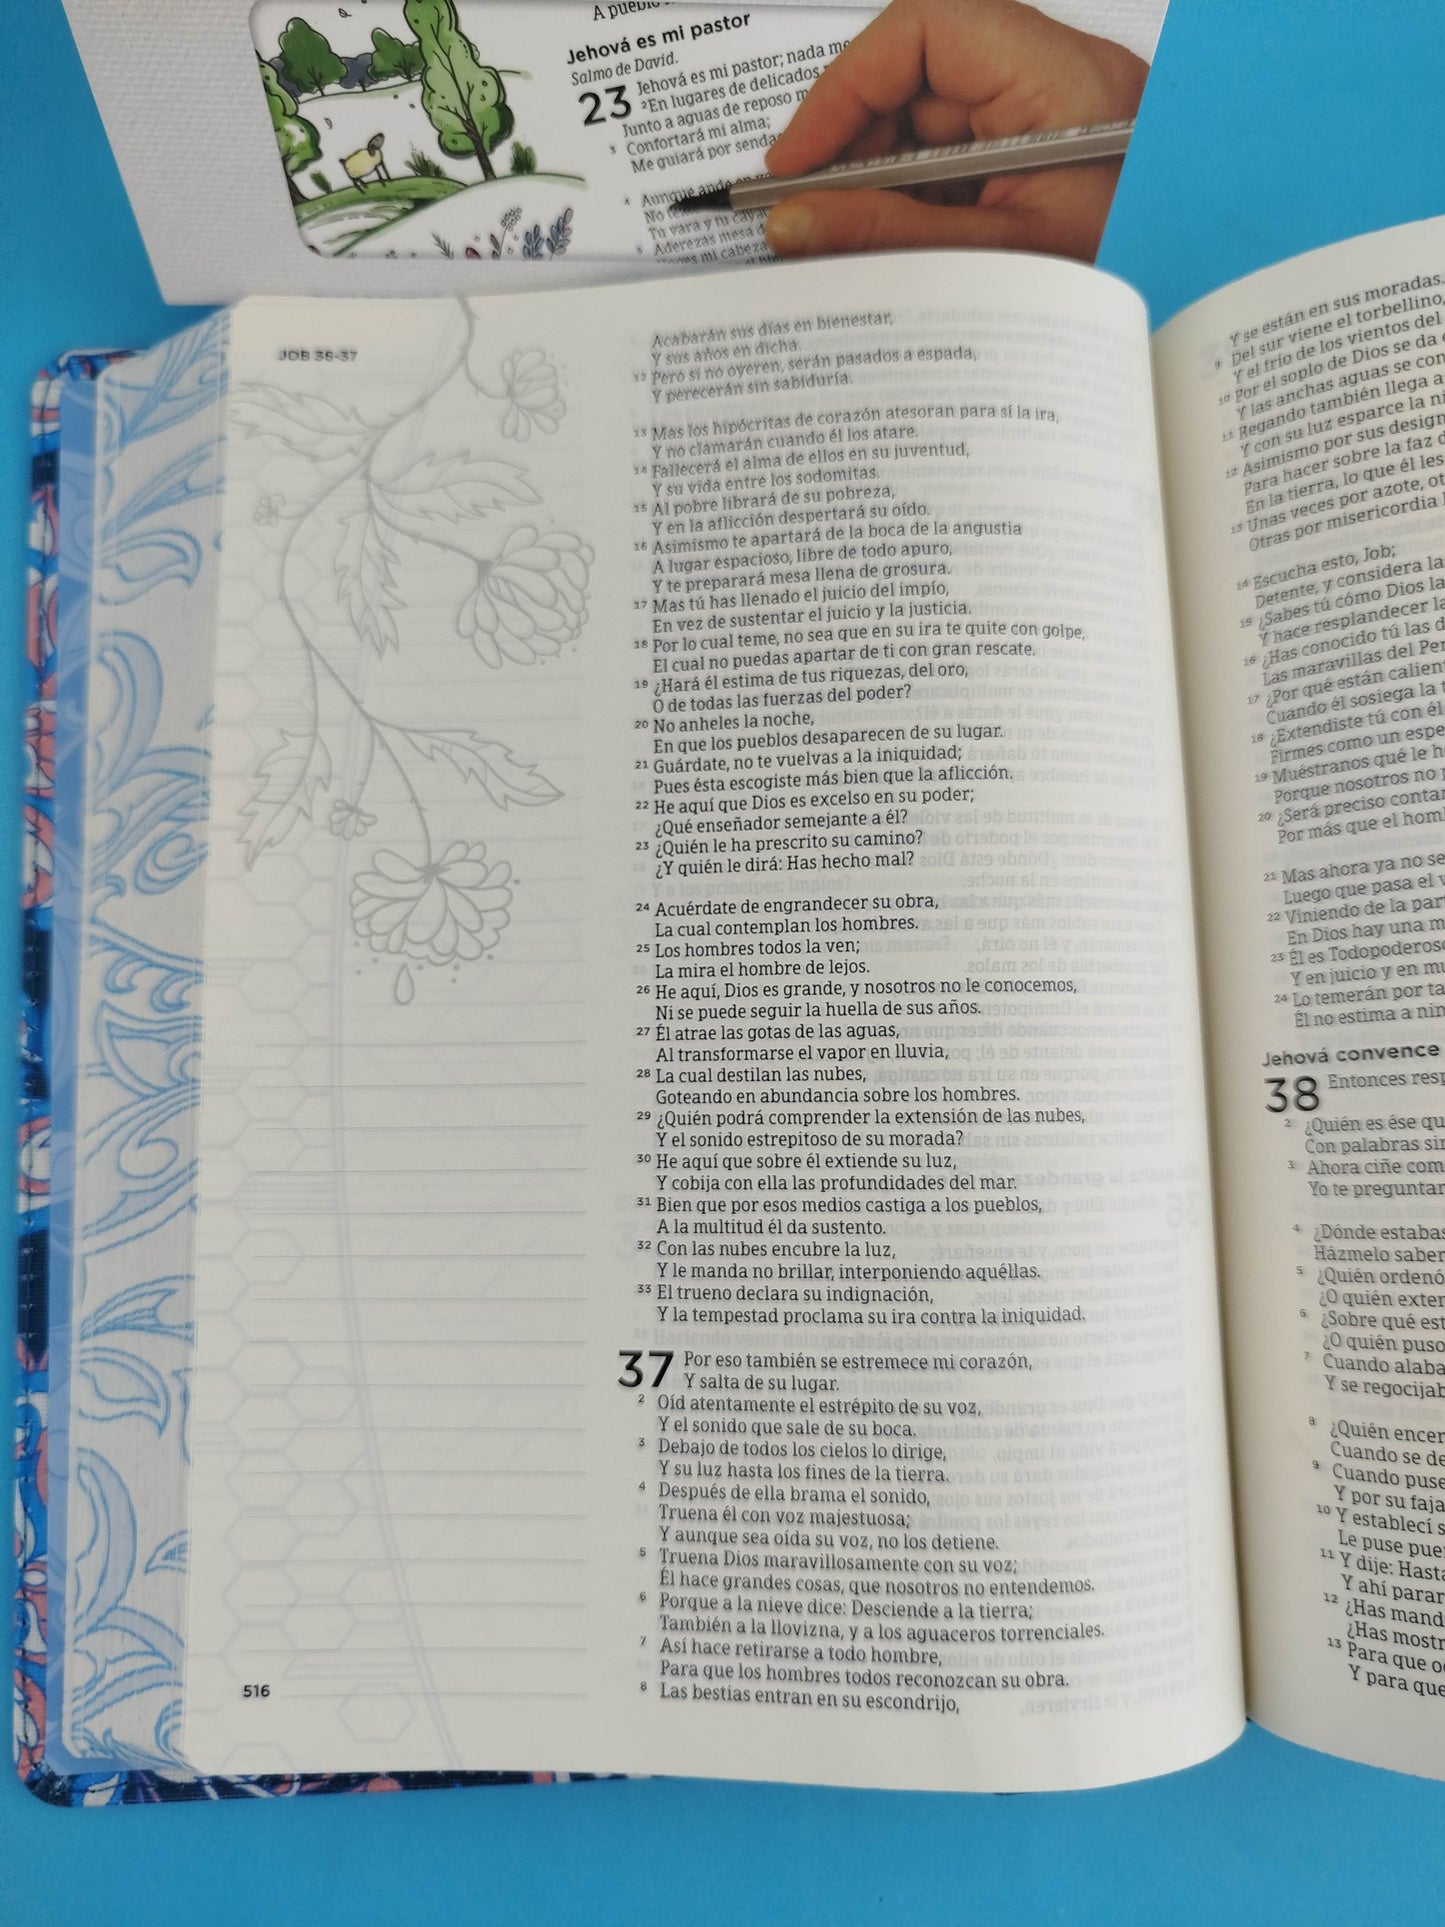 A pueblo
Jehová es mi pastor
Salmo de David.
23 Jehová es mi pastor; nada me
2 En lugares de delicados
Junto a aguas de reposo m
3 Confortará mi alma;
Me guiará por senda
4 Aunque ande en
No
Tu vara y tu caya
5 Aderezas mesa d
mi cabeza
JOB 36-37
Acabarán sus días en bienestar,
Y sus años en dicha.
12 Pero si no oyeren, serán pasados a espada,
Y perecerán sin sabiduría.
13 Mas los hipócritas de corazón atesoran para sí la ira,
Y no clamarán cuando él los atare.
14 Fallecerá el alma de ellos en su juventud,
Y su vida entre los sodomitas.
15 Al pobre librará de su pobreza,
Y en la aflicción despertará su oído.
16 Asimismo te apartará de la boca de la angustia
A lugar espacioso, libre de todo apuro,
Y te preparará mesa llena de grosura.
17 Mas tú has llenado el juicio del impío,
En vez de sustentar el juicio y la justicia.
18 Por lo cual teme, no sea que en su ira te quite con golpe,
El cual no puedas apartar de ti con gran rescate.
19 ¿Hará él estima de tus riquezas, del oro,
O de todas las fuerzas del poder?
20 No anheles la noche,
En que los pueblos desaparecen de su lugar.
21 Guárdate, no te vuelvas a la iniquidad;
Pues ésta escogiste más bien que la aflicción.
22 He aquí que Dios es excelso en su poder;
¿Qué enseñador semejante a él?
23 ¿Quién le ha prescrito su camino?
¿Y quién le dirá: Has hecho mal?
24 Acuérdate de engrandecer su obra,
La cual contemplan los hombres.
25 Los hombres todos la ven;
La mira el hombre de lejos.
26 He aquí, Dios es grande, y nosotros no le conocemos,
Ni se puede seguir la huella de sus años.
27 Él atrae las gotas de las aguas,
Al transformarse el vapor en lluvia,
28 La cual destilan las nubes,
Goteando en abundancia sobre los hombres.
29 ¿Quién podrá comprender la extensión de las nubes,
Y el sonido estrepitoso de su morada?
30 He aquí que sobre él extiende su luz,
Y cobija con ella las profundidades del mar.
31 Bien que por esos medios castiga a los pueblos,
A la multitud él da sustento.
32 Con las nubes encubre la luz,
Y le manda no brillar, interponiendo aquéllas.
33 El trueno declara su indignación,
Y la tempestad proclama su ira contra la iniquidad.
37 Por eso también se estremece mi corazón,
Y salta de su lugar.
2 Oíd atentamente el estrépito de su voz,
Y el sonido que sale de su boca.
3 Debajo de todos los cielos lo dirige,
Y su luz hasta los fines de la tierra.
4 Después de ella brama el sonido,
Truena él con voz majestuosa;
Y aunque sea oída su voz, no los detiene.
5 Truena Dios maravillosamente con su voz;
Él hace grandes cosas, que nosotros no entendemos.
6 Porque a la nieve dice: Desciende a la tierra;
También a la llovizna, y a los aguaceros torrenciales.
7 Así hace retirarse a todo hombre,
Para que los hombres todos reconozcan su obra.
8 Las bestias entran en su escondrijo,
516
Y se están en sus moradas.
9 Del sur viene el torbellino,
Y el frío de los vientos del
10 Por el soplo de Dios se da
Y las anchas aguas se con
11 Regando también llega a
Y con su luz esparce la ni
12 Asimismo por sus design
Para hacer sobre la faz d
En la tierra, lo que él les
13 Unas veces por azote, ot
Otras por misericordia
14 Escucha esto, Job;
Detente, y considera la
15 ¿Sabes tú cómo Dios la
Y hace resplandecer la
16 ¿Has conocido tú las d
Las maravillas del Per
17 ¿Por qué están calient
Cuando él sosiega la t
18 ¿Extendiste tú con él
Firmes como un espe
19 Muéstranos qué le h
Porque nosotros no
20 ¿Será preciso contar
Por más que el hom
21 Mas ahora ya no se
Luego que pasa el v
22 Viniendo de la par
En Dios hay una m
23 Él es Todopoderoso
Y en juicio y en mu
24 Lo temerán por ta
Él no estima a nin
Jehová convence
38 Entonces resp
2 ¿Quién es ése qu
Con palabras sin
3 Ahora ciñe com
Yo te preguntar
4 ¿Dónde estabas
Házmelo saber
5 ¿Quién ordenó
¿O quién exten
6 ¿Sobre qué est
¿O quién puso
7 Cuando alaba
Y se regocijab
8 ¿Quién encer
Cuando se de
9 Cuando puse
Y por su faja
10 Y establecí s
Le puse puer
11 Y dije: Hasta
Y ahí parar
12 ¿Has mand
¿Has mostr
13 Para que oc
Y para que